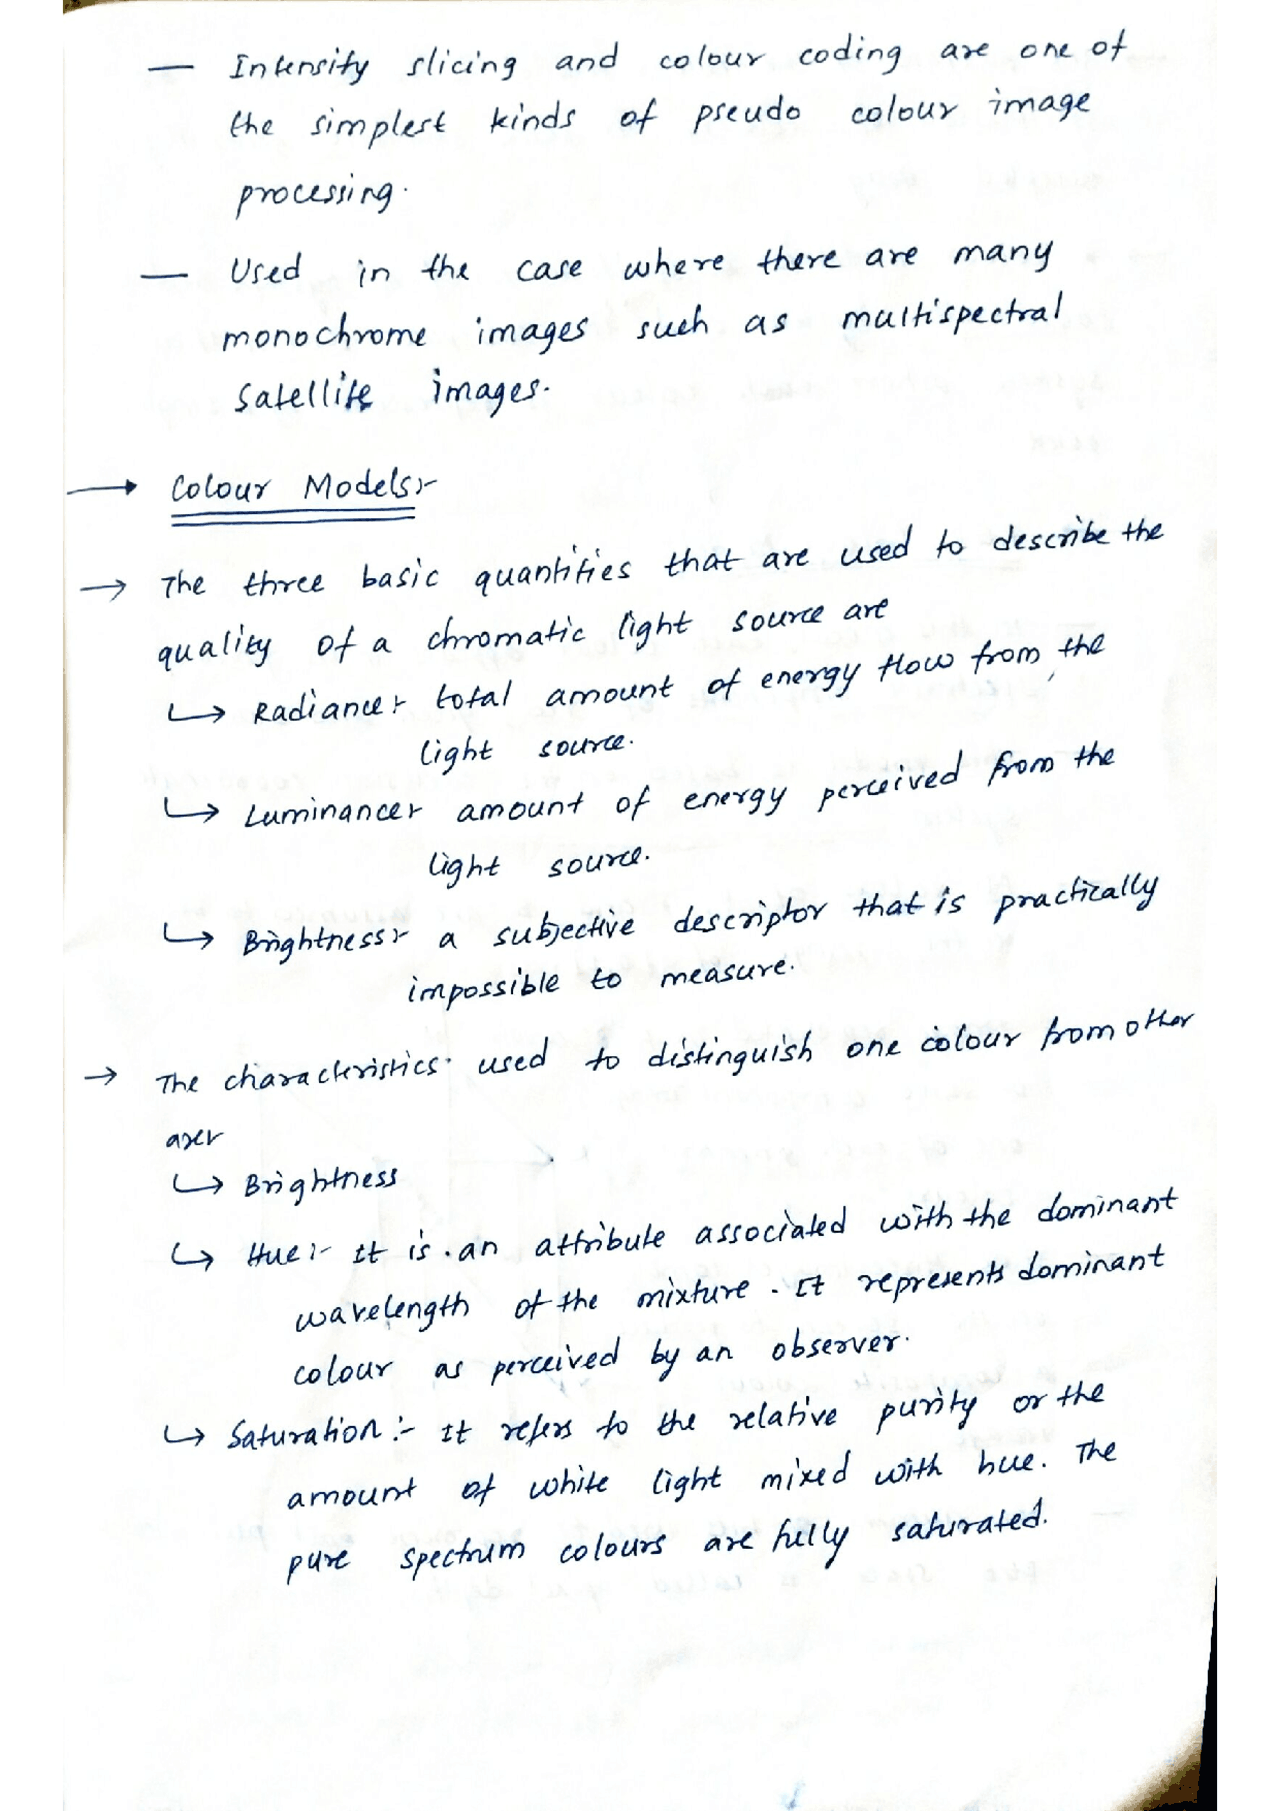 — Intensity slicing and colour coding are one of
the simplest kinds of pseudo colour image
processing.
— Used in the case where there are many
monochrome images such as multispectral
satellite images.
→ Colour Models:-
→ The three basic quantities that are used to describe the
quality of a chromatic light source are
↳ Radiance:- total amount of energy flow from the
light source.
↳ Luminance:- amount of energy perceived from the
light source.
↳ Brightness:- a subjective descriptor that is practically
impossible to measure.
→ The characteristics used to distinguish one colour from other
are:-
↳ Brightness
↳ Hue:- It is an attribute associated with the dominant
wavelength of the mixture. It represents dominant
colour as perceived by an observer.
↳ Saturation:- It refers to the relative purity or the
amount of white light mixed with hue. The
pure spectrum colours are fully saturated.